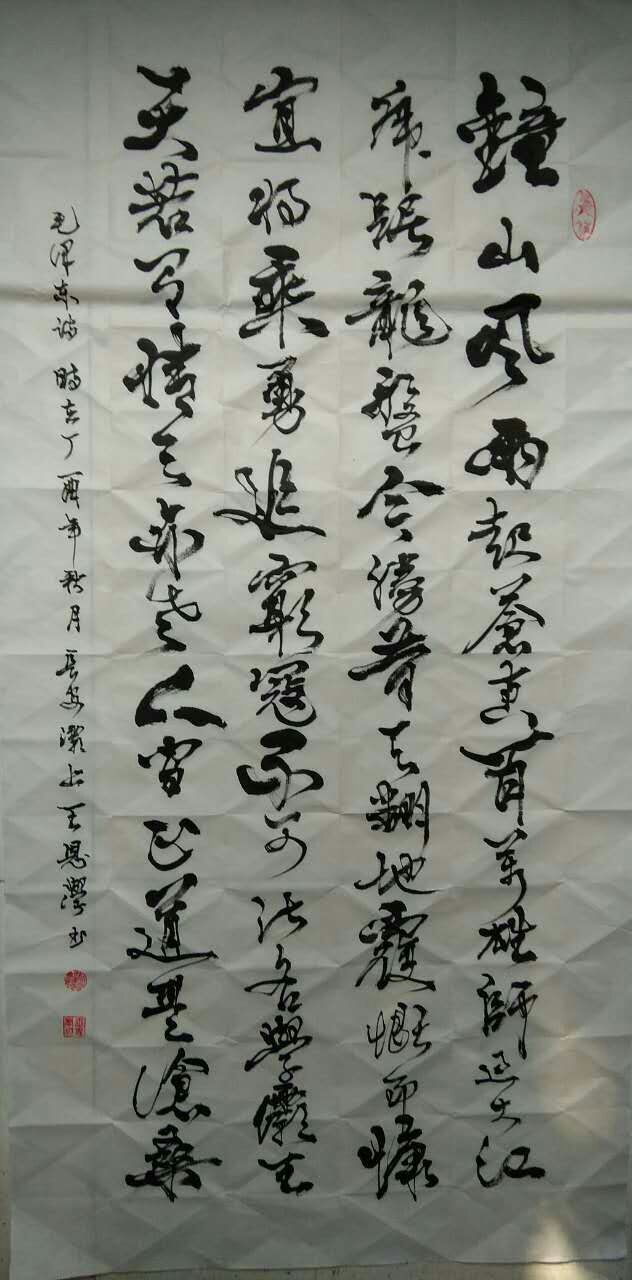 鐘山风雨起蒼黄百萬雄師过大江
虎踞龍盤今勝昔天翻地覆慨而慷
宜将乘勇追窮寇不可沽名學霸王
天若有情天亦老人间正道是滄桑
毛泽东诗 時在丁酉年秋月長安灞上王恩书